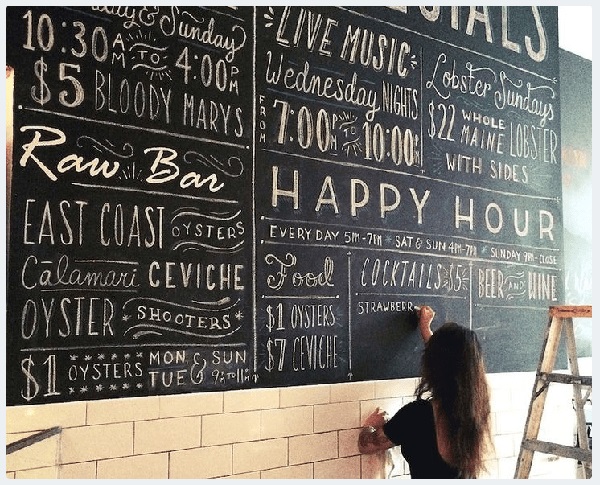 & Sunday
10:30 AM TO 4:00 PM
$5 BLOODY MARYS
Raw Bar
EAST COAST OYSTERS
Calamari CEVICHE
OYSTER SHOOTERS
$1 OYSTERS MON & SUN
TUE 9:TO11:
LIVE MUSIC
Wednesday NIGHTS
FROM 7:00PM TO 10:00PM
Lobster Sundays
$22 WHOLE MAINE LOBSTER
WITH SIDES
HAPPY HOUR
EVERYDAY 5PM-7PM * SAT & SUN 4PM-7PM * SUNDAY 9PM-CLOSE
Food
$1 OYSTERS
$7 CEVICHE
COCKTAILS $5
STRAWBERR
BEER AND WINE